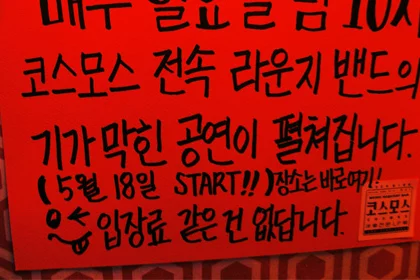 매주 일요일 밤 10시
코스모스 전속 라운지 밴드의
기가 막힌 공연이 펼쳐집니다.
(5월 18일 START!!) 장소는 바로여기!
입장료 같은건 없답니다.
코스모스